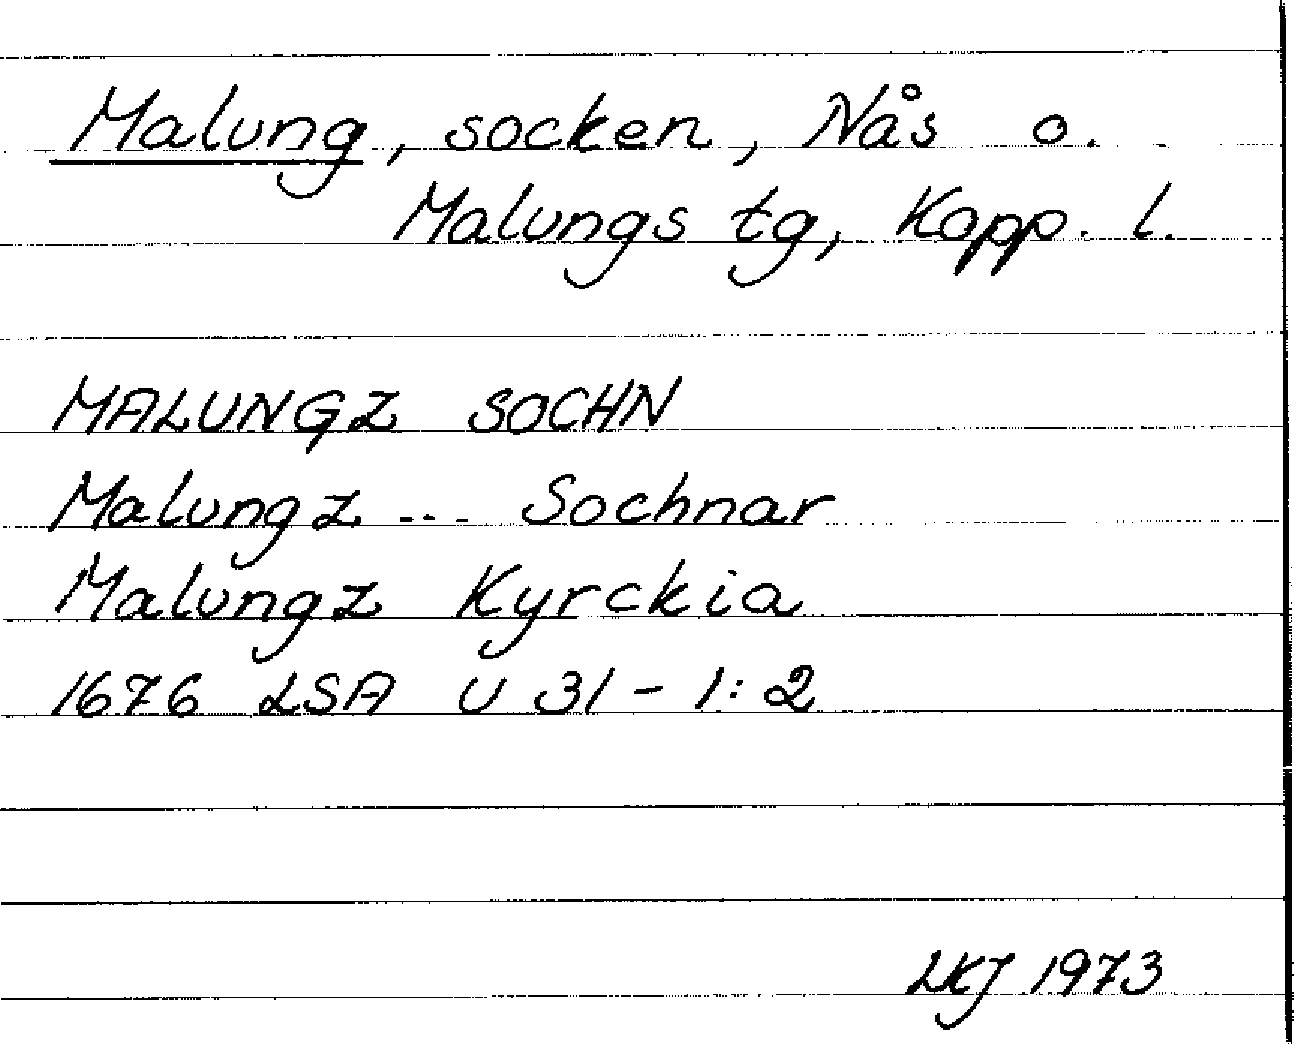 Malung, socken, Nås o.
Malungs tg, Kopp. l.
MALUNGZ SOCHN
Malungz... Sochnar
Malungz Kyrckia
1676 LSA U 31 - 1:2
LKJ 1973